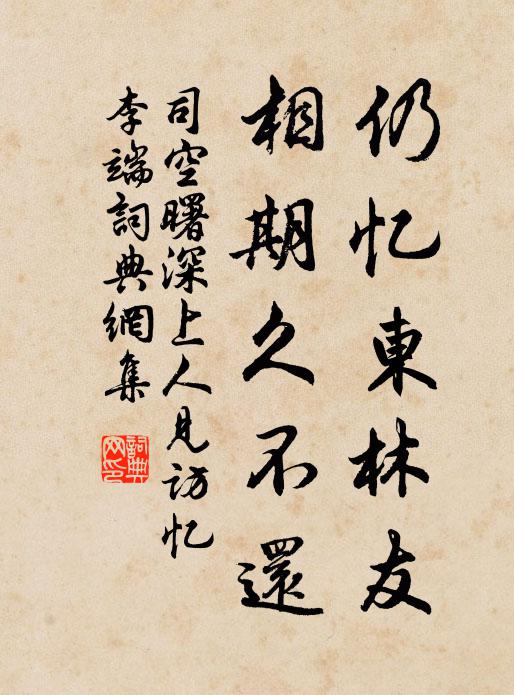 仍忆東林友
相期久不還
司空曙深上人見訪忆
李端詞典網集
詞典
网印